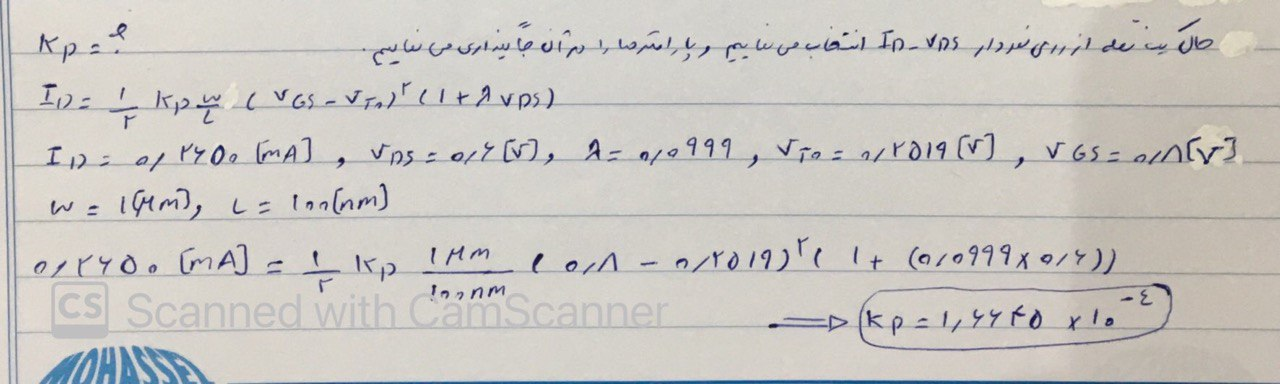 حال یک نقطه از روی نمودار ID-VDS انتخاب می نماییم و پارامترها را در آن جایگذاری می نماییم. Kp = ?
ID = ۱/۲ Kp W/L (VGS - VT۰)^۲ (۱ + λ VDS)
ID = ۰/۲۶۵۰ [mA] , VDS = ۰/۶ [V] , λ = ۰/۰۹۹۹ , VT۰ = ۰/۲۵۱۹ [V] , VGS = ۰/۸ [V]
W = ۱[μm] , L = ۱۰۰[nm]
۰/۲۶۵۰ [mA] = ۱/۲ Kp ۱μm/۱۰۰nm (۰/۸ - ۰/۲۵۱۹)^۲ (۱ + (۰/۰۹۹۹ × ۰/۶))
⇒ Kp = ۱,۶۶۴۵ × ۱۰^-۴
CS Scanned with CamScanner
MOHASSEL